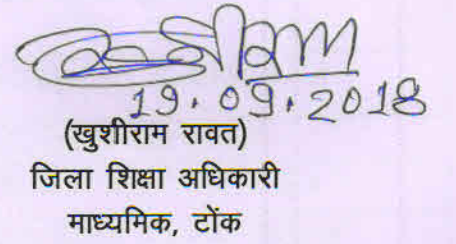 19.09.2018
(खुशीराम रावत)
जिला शिक्षा अधिकारी
माध्यमिक, टोंक